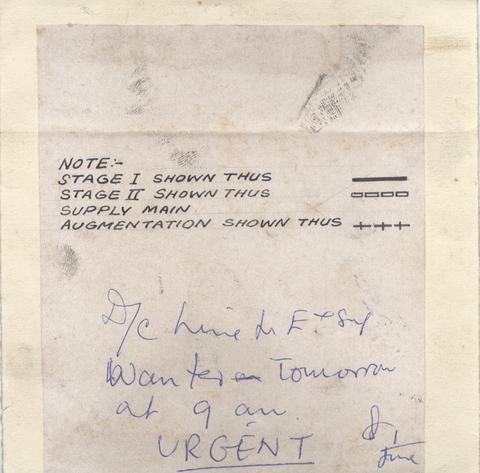 NOTE:-
STAGE I SHOWN THUS
STAGE II SHOWN THUS
SUPPLY MAIN
AUGMENTATION SHOWN THUS
D/c Line
Wanted Tomorrow
at 9 am.
URGENT